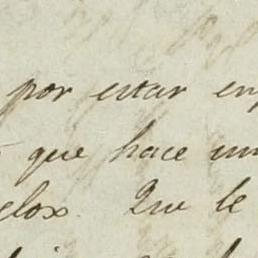 por estar en
que hace un
elox. Que le